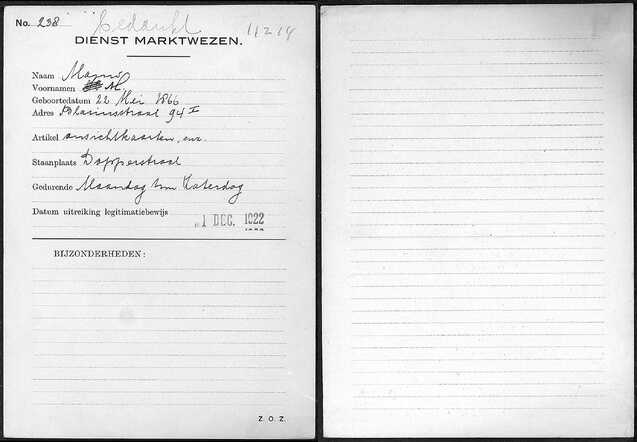 No. 238 bedankt
DIENST MARKTWEZEN.
Naam
Voornamen M.
Geboortedatum 22 Mei 1866
Adres Blasiusstraat 94 I
Artikel ansichtkaarten, enz.
Staanplaats Dapperstraat
Gedurende Maandag t/m Zaterdag
Datum uitreiking legitimatiebewijs 1 DEC. 1922
BIJZONDERHEDEN:
Z. O. Z.